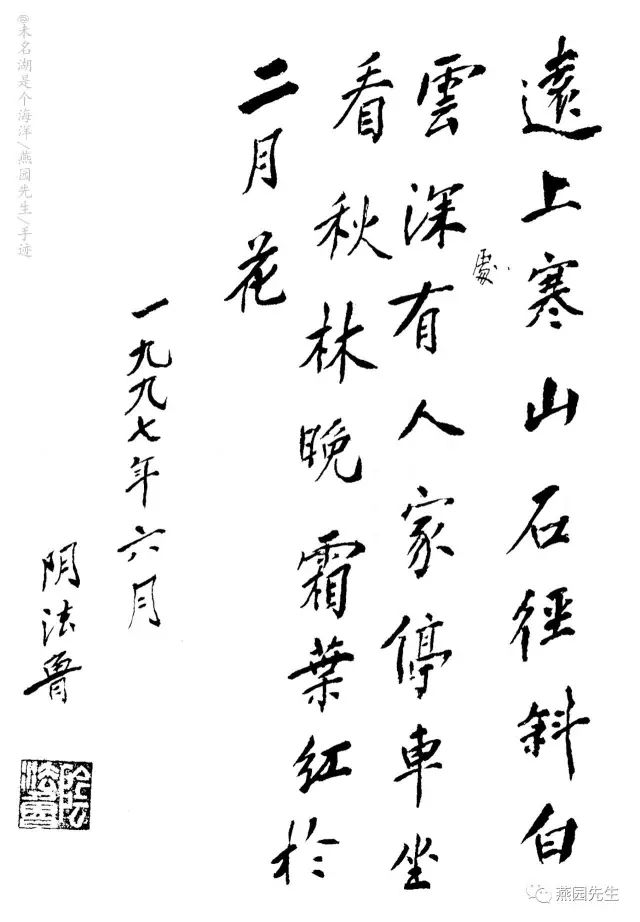 遠上寒山石徑斜白
雲深有人家停車坐
處
看秋林晚霜葉红於
二月花
一九九七年六月
阴法鲁
陰法魯
@未名湖是个海洋/燕园先生/手迹
燕园先生